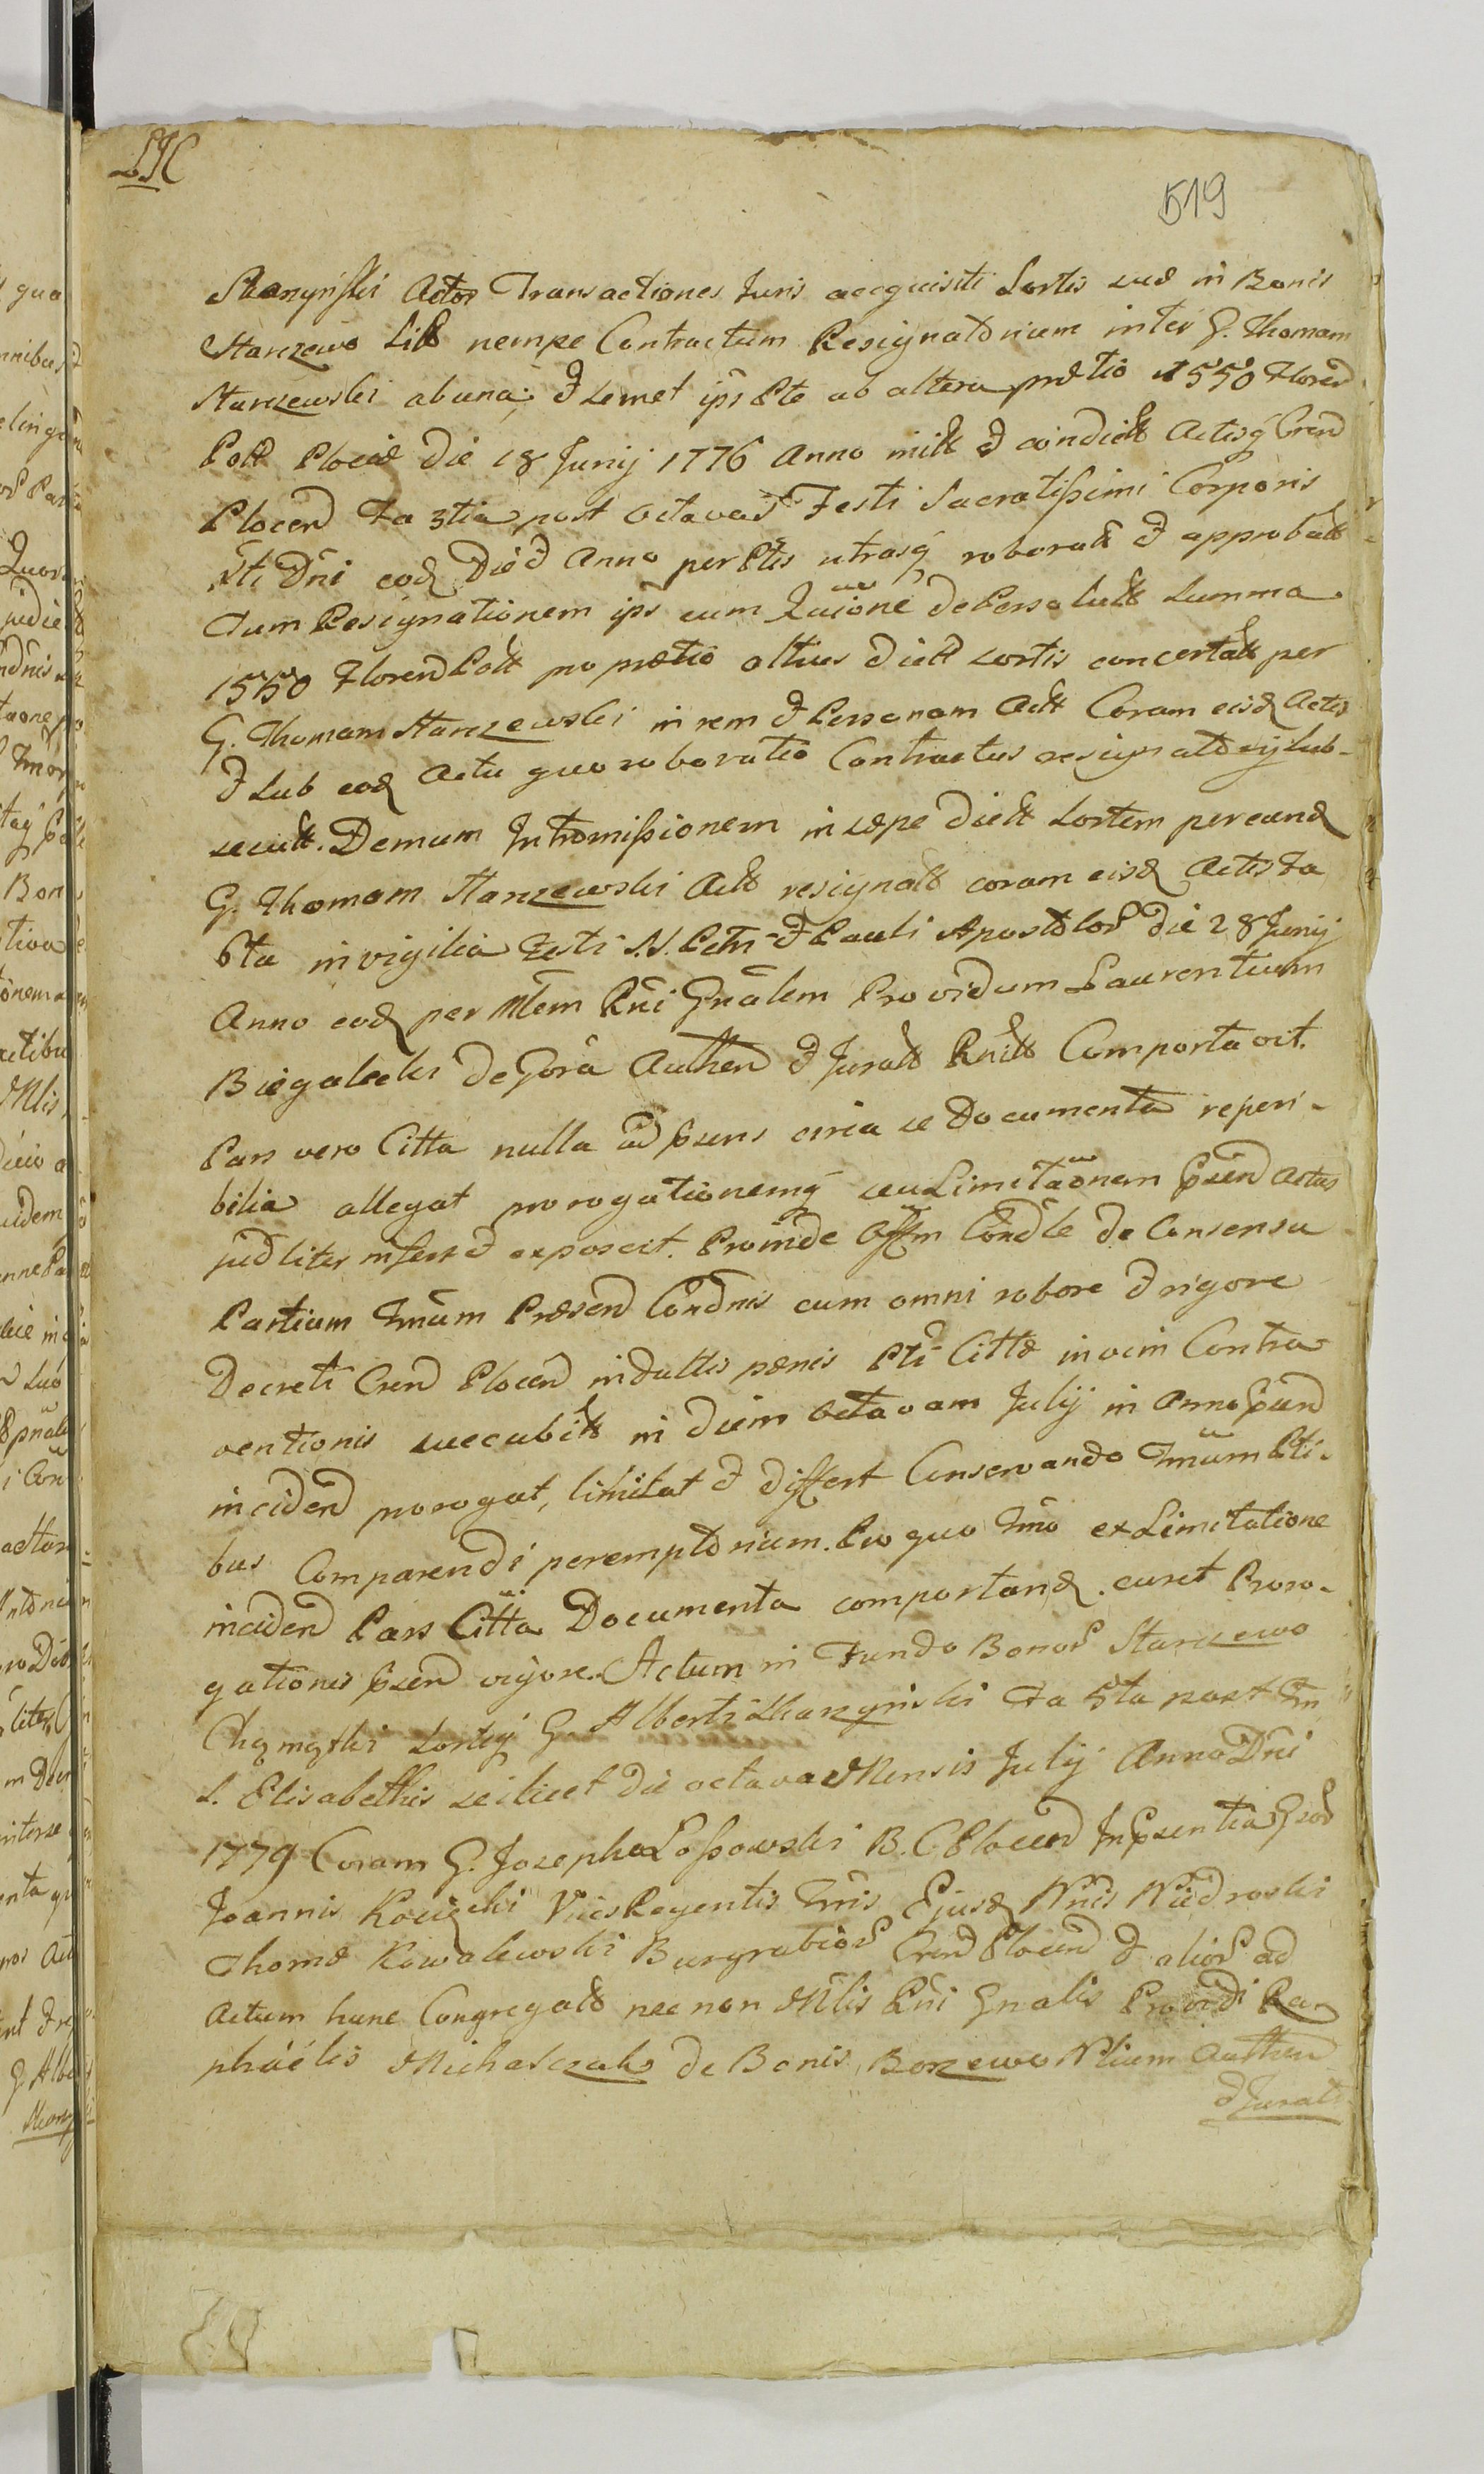 519
Skarzyński Actor Transactiones Juris acquisiti Sortis suæ in Bonis
Starczewo nempe Contractum Resignatorium inter G. Thomam
Starczewski ab una; & semet ips Pte ab altera prætio 1550 Floren
Poll Plociæ Die 18 Junij 1776 Anno init & condict Actisq Cren
Plocen Fa 3tia post Octavas Festi Sacratissimi Corporis
Xti Dni eod Die & Anno per Ptes utrasq roborat & approbat
Tum Resignationem ips cum Quione de Persolut Summa
1550 Floren Poll pro prætio altius dict sortis concertat per
G. Thomam Starczewski in rem & Personam Act Coram eisd Actis
& Sub eod Actu quo roboratio Contractus resignatorij sub-
secut. Demum Intromissionem in sæpe dict Sortem per eund
G. Thomam Starczewski Act resignat coram eisd Actis Fa
6ta in vigilia Festi S.S. Petri & Pauli Apostolor die 28 Junij
Anno eod per Mlem Rni Gnalem Providum Laurentium
Biegalski de Gora Authen & Jurat Rnit Comportavit.
Pars vero Citta nulla ad psens circa se Documenta reperi-
bilia allegat prorogationemq seu Limitaonem psen Actus
judliter inferri exposcit. Proinde Offm Condle de Consensu
Partium Tnum Præsen Condnis cum omni robore & rigore
Decreti Cren Plocen indultis pænis Pti Cittæ in vim Contra-
ventionis succubit in diem octavam Julij in Anno psen
inciden prorogat, limitat & differt Conservando Tnum Pti-
bus Comparendi peremptorium. Pro quo Tno ex Limitatione
inciden Pars Citta Documenta comportand. curet Proro-
gationis psen vigore. Actum in Fundo Bonor Starczewo
Sortis G. Alberti Skarzyński Fa 5ta post Fm
S. Elisabethis scilicet die octava Mensis Julij Anno Dni
1779 Coram G. Josepho Lossowski B. C. Plocen In Psentia Gsor
Joannis Kocięcki ViceRegentis Tnris Ejusd Niedroski
Thomæ Kowalewski Burgrabior Cren Plocen & alior ad
Actum hunc Congregat nec non Mlis Rni Gnalis Providi Ra-
phäelis Michalczak de Bonis Borzewo Nlium Authen
& Jurati